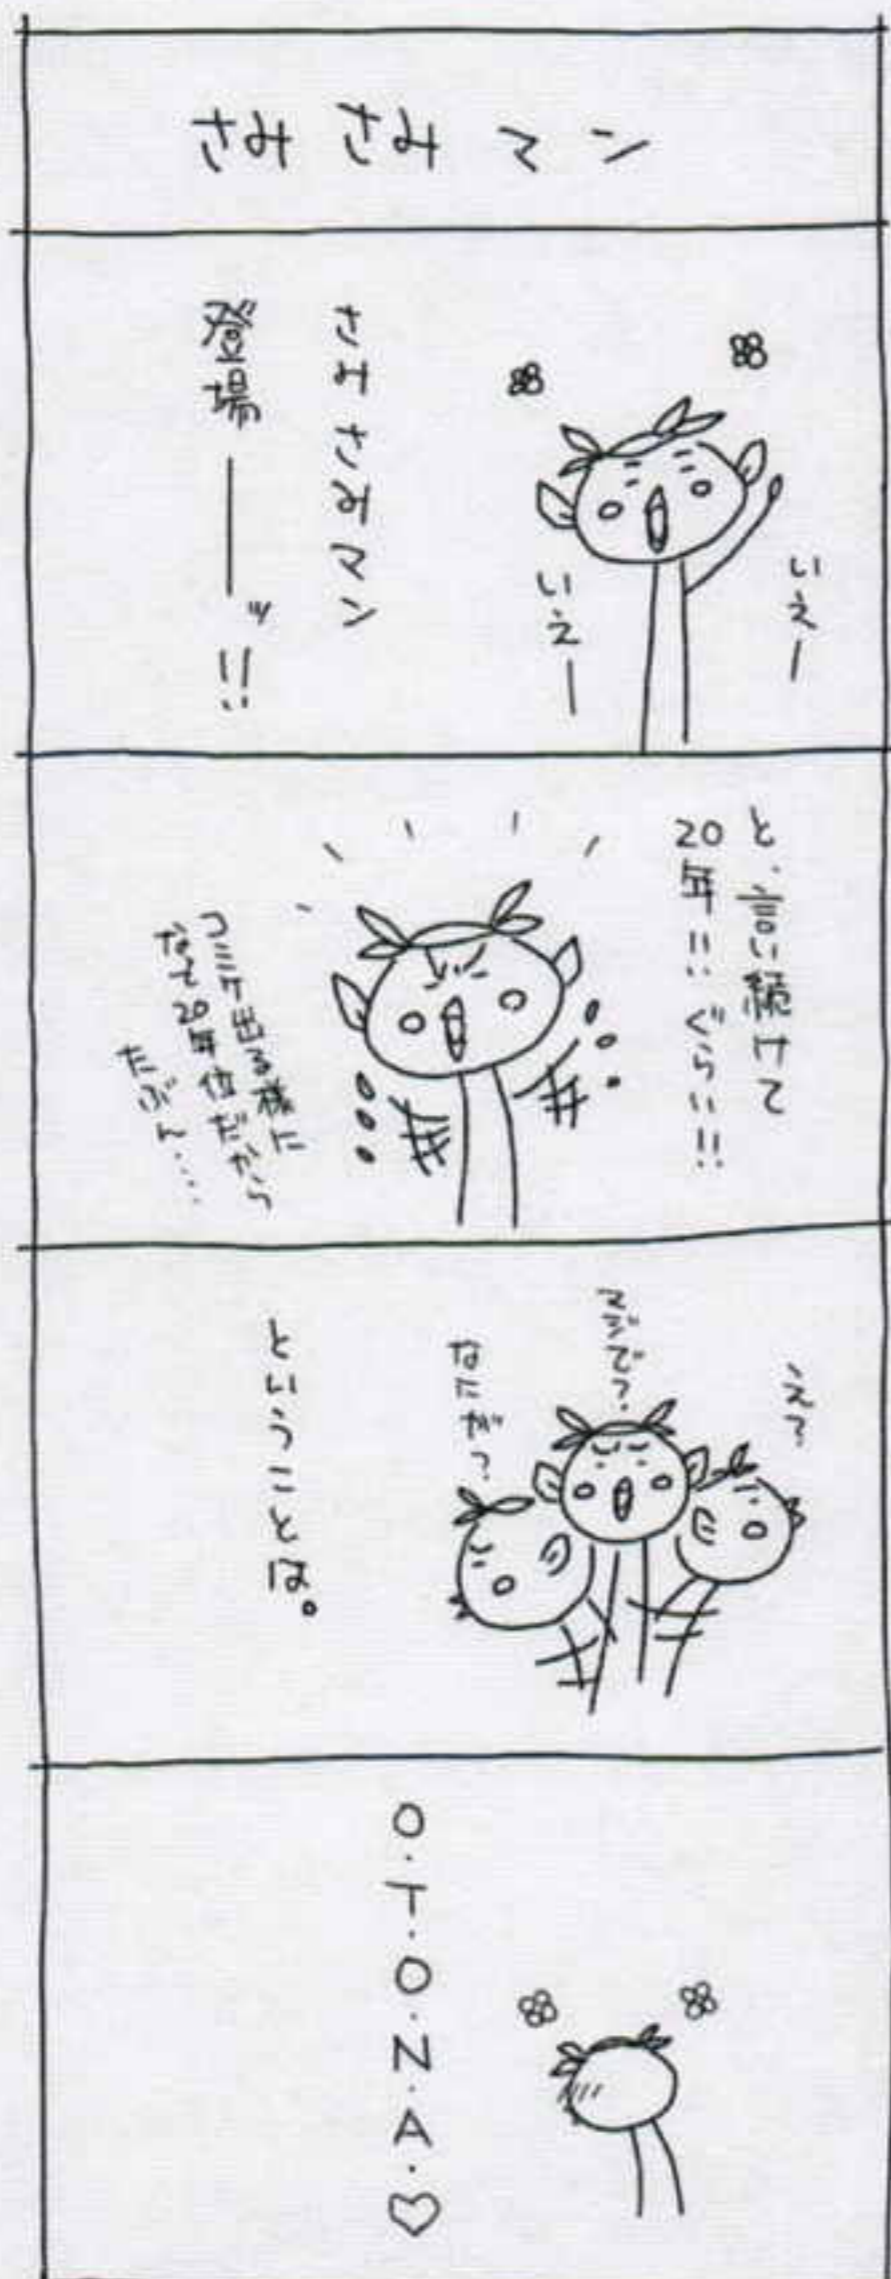 さみさみマン
いえー
いえー
さみさみマン
登場――ッ!!
と、言い続けて
20年!!ぐらい!!
コミケ出る様に
なて20年位だから
たぶん‥‥
え?
マジで?
なにが?
ということは。
O.T.O.N.A.♡